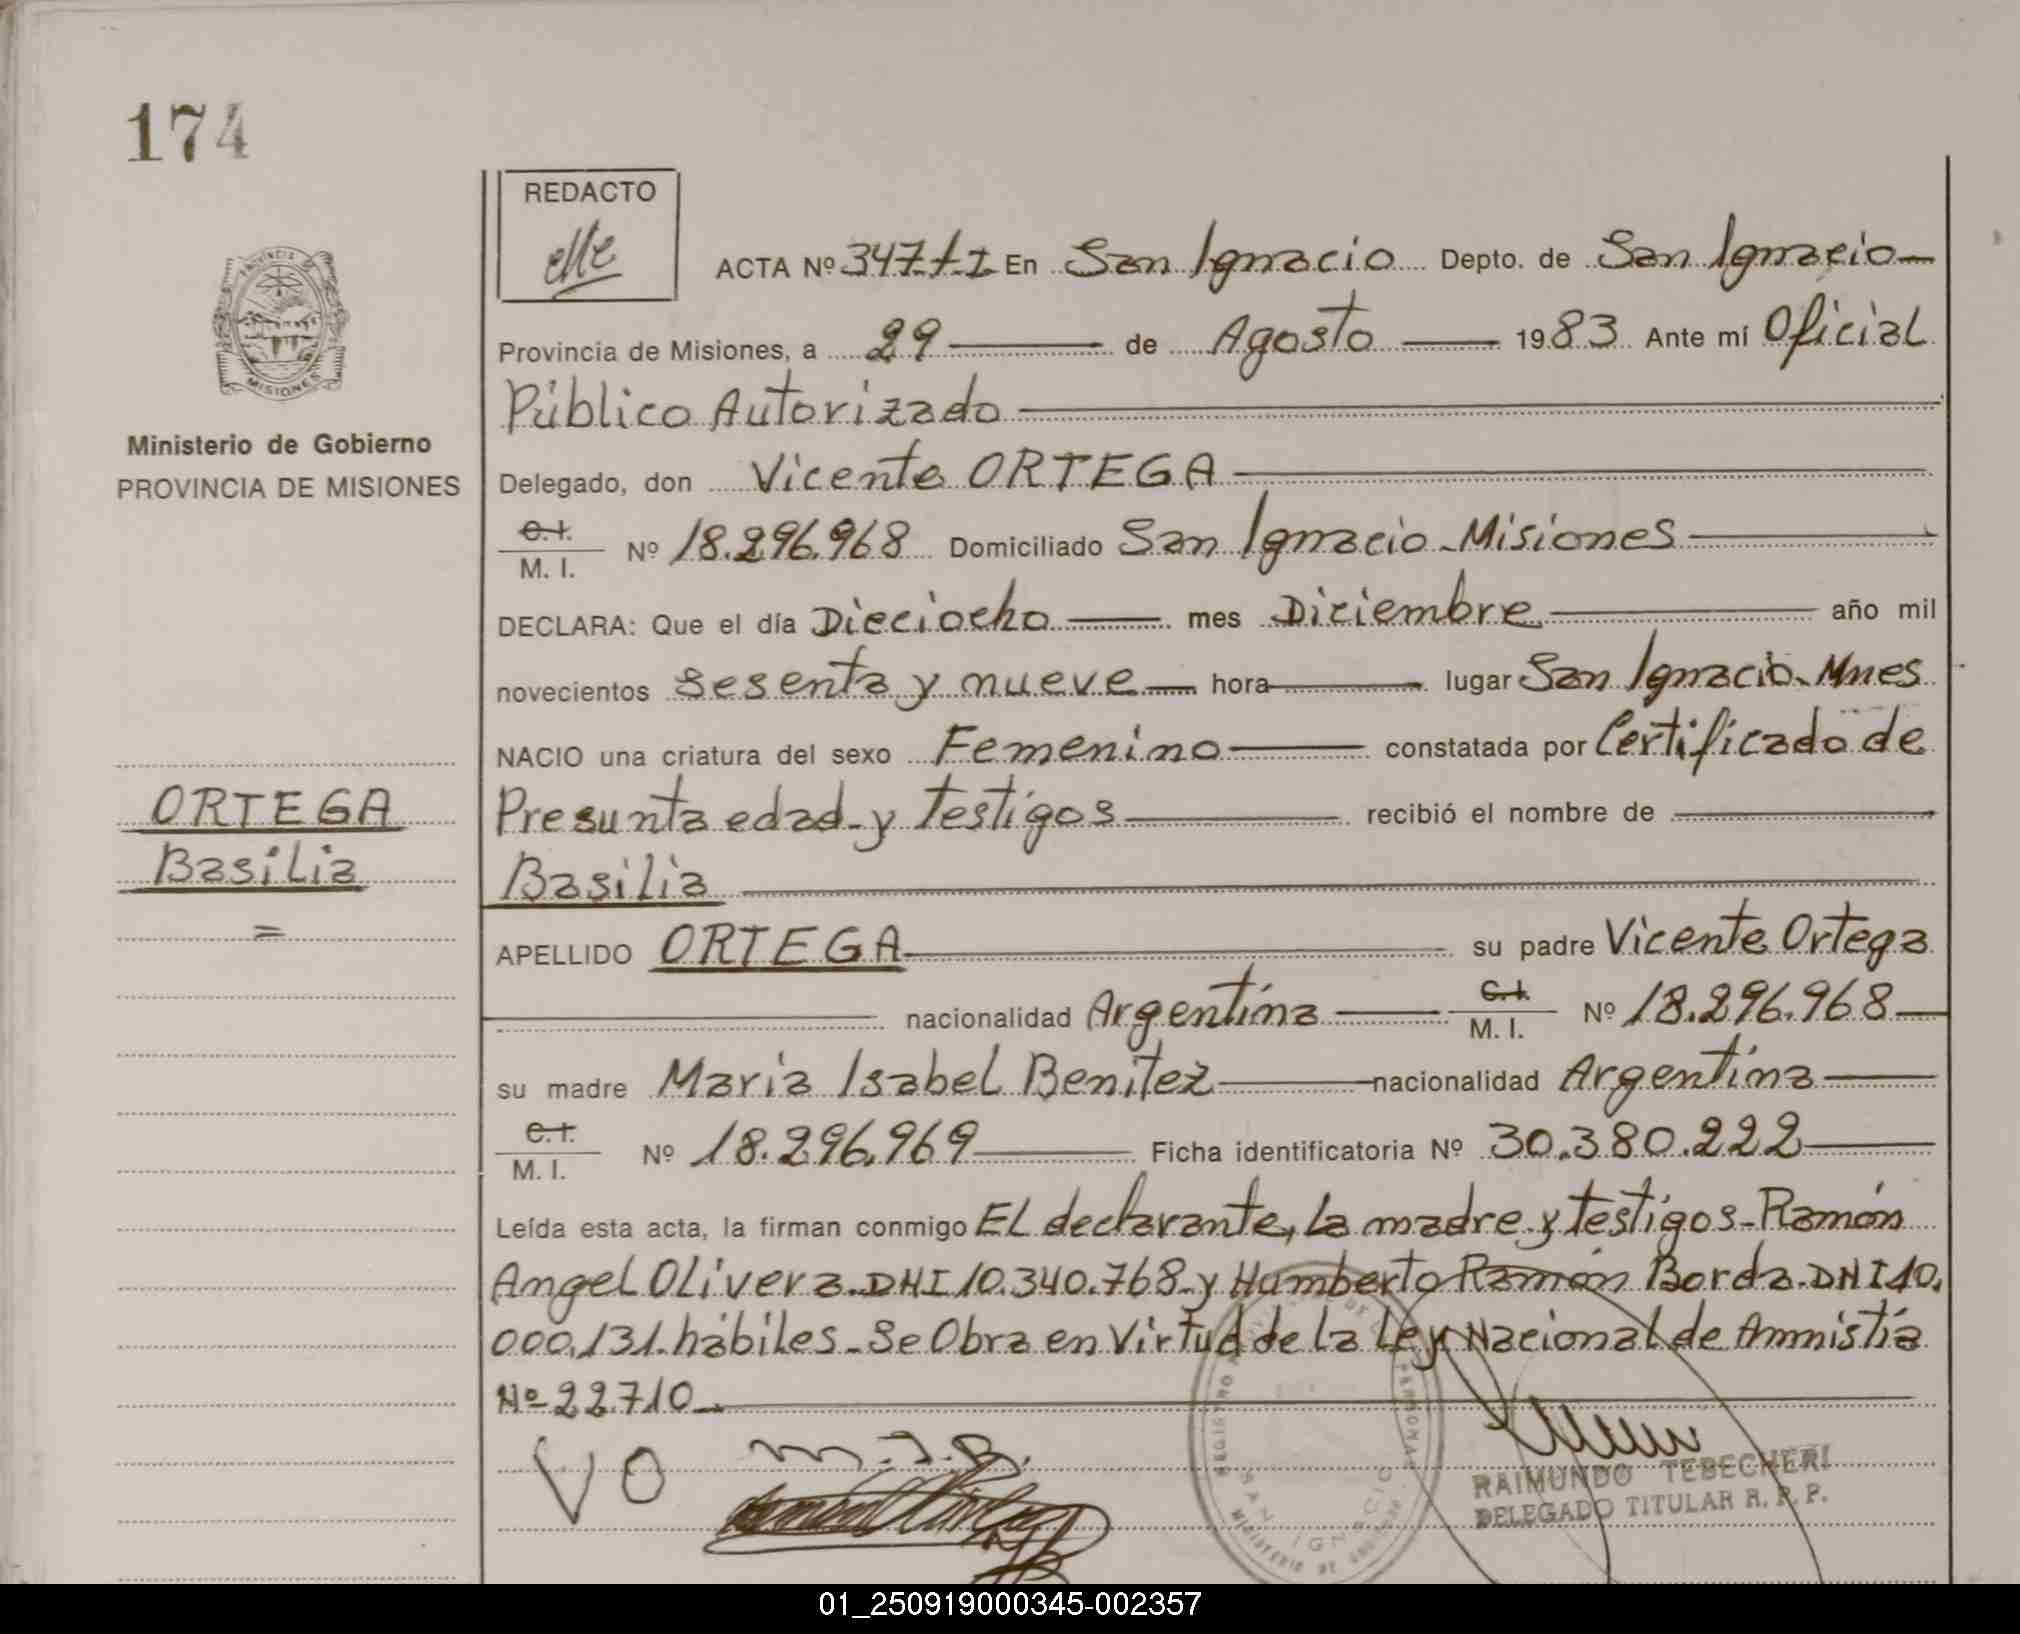 174
REDACTO
ACTA Nº 347-t-I En San Ignacio Depto. de San Ignacio
PROVINCIA DE MISIONES
Provincia de Misiones, a 29 de Agosto 1983 Ante mí Oficial
Público Autorizado
Ministerio de Gobierno
PROVINCIA DE MISIONES
Delegado, don Vicente ORTEGA
C.I.
M. I. Nº 18.296.968 Domiciliado San Ignacio - Misiones
DECLARA: Que el día Dieciocho mes Diciembre año mil
novecientos sesenta y nueve hora lugar San Ignacio - Mnes
NACIO una criatura del sexo Femenino constatada por Certificado de
Presunta edad - y testigos recibió el nombre de
ORTEGA
Basilia
=
Basilia
APELLIDO ORTEGA su padre Vicente Ortega
nacionalidad Argentina C.I. M. I. Nº 18.296.968
su madre Maria Isabel Benitez nacionalidad Argentina
C.I.
M. I. Nº 18.296.969 Ficha identificatoria Nº 30.380.222
Leída esta acta, la firman conmigo El declarante, la madre y testigos - Ramón
Angel Olivera - DNI 10.340.768 - y Humberto Ramón Borda - DNI 10.
000.131 - hábiles - Se Obra en Virtud de la Ley Nacional de Amnistía
Nº 22710
VO m.I.B.
REGISTRO PROVINCIAL DE LAS PERSONAS
SAN IGNACIO
MINISTERIO DE GOBIERNO
RAIMUNDO TEBECHERI
DELEGADO TITULAR R. P. P.
01_250919000345-002357